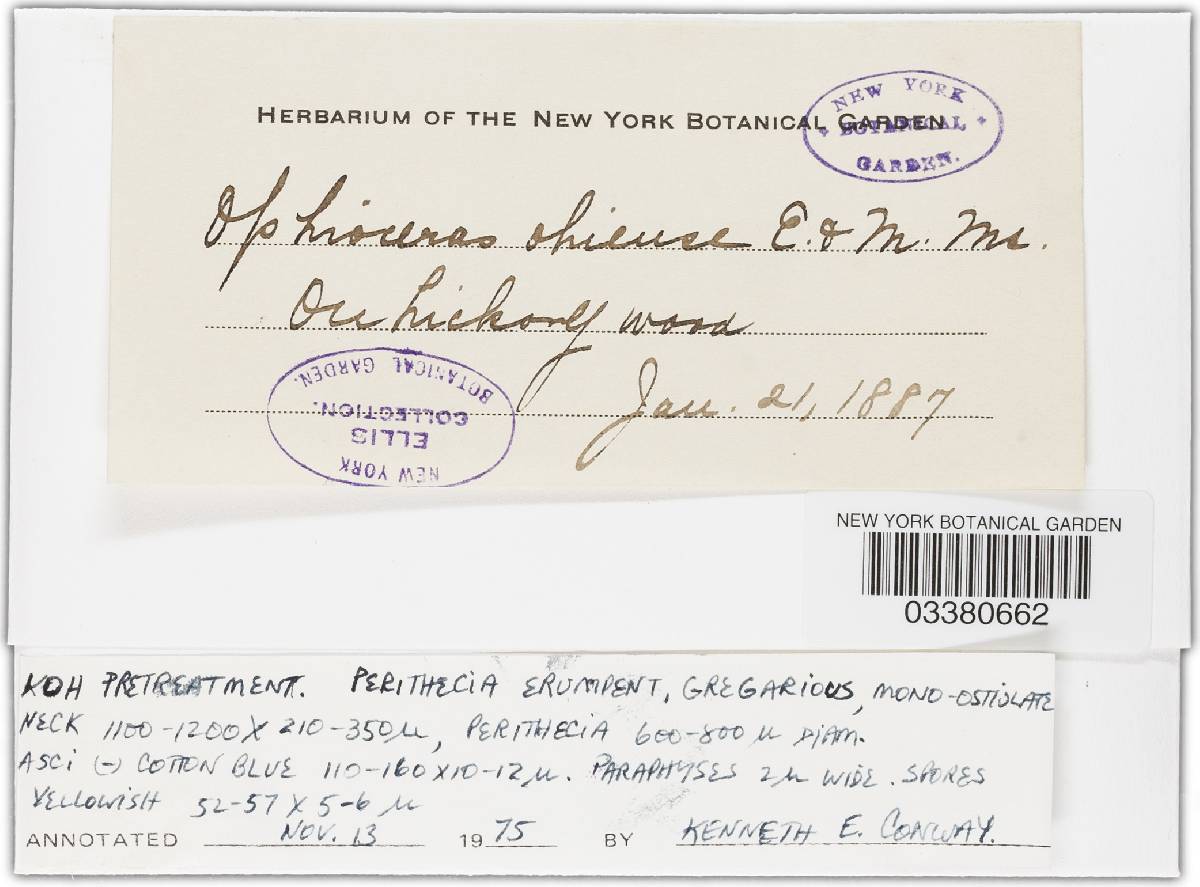 HERBARIUM OF THE NEW YORK BOTANICAL GARDEN
NEW YORK
BOTANICAL
GARDEN.
Ophioceras ohiense E. & M. Ms.
On hickory wood
Jan. 21, 1887
NEW YORK
ELLIS
COLLECTION.
BOTANICAL GARDEN.
NEW YORK BOTANICAL GARDEN
03380662
KOH PRETREATMENT. PERITHECIA ERUMPENT, GREGARIOUS, MONO-OSTIOLATE
NECK 1100-1200 X 210-350 µ, PERITHECIA 600-800 µ DIAM.
ASCI (-) COTTON BLUE 110-160 X 10-12 µ. PARAPHYSES 2µ WIDE. SPORES
YELLOWISH 52-57 X 5-6 µ
ANNOTATED NOV. 13 1975 BY KENNETH E. CONWAY.